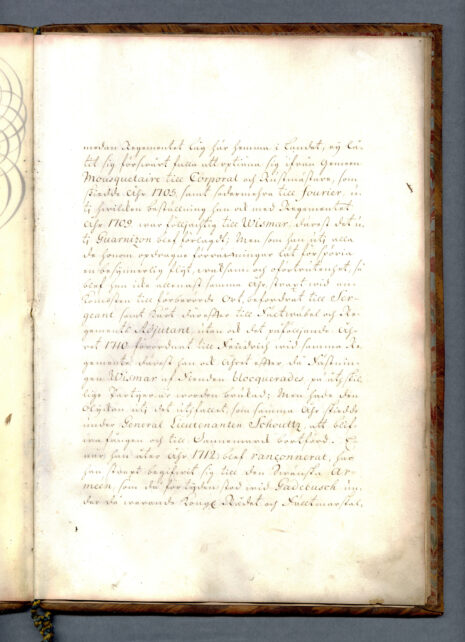 medan Regementet låg här hemma i Landet, ej lå-
tit sig förswårt falla att optiena sig ifrån Gemen
Mousquetaire till Corporal och Rustmästare, som
skedde Åhr 1705, samt sedermehra till fourier, in
uti hwilken beställning han ock med Regementet
Åhr 1709 war föllgachtig till Wismar, därest det u-
ti Guarnizon blef förlagdt; Men som han uti alla
de honom opdragne förrättningar låt förspöria
en besynnerlig flijt, waksam och oförtrutenhet, så
blef han icke allenast samma Åhr straxt wid an-
komsten till förberörde Ort, befordrat till Ser-
geant samt kårt därefter till Fältwäbel och Re-
gements Adjutant, utan ock det påföljande Åh-
ret 1710 förordnat till Fendrich wid samma Re-
gemente därest han ock Åhret efter då Fästnin-
gen Wismar af Fienden blocquerades på åtskil-
lige Partyer är worden brukad; Men hade den
Olyckan uti det utfallet, som samma Åhr skedde
under General Lieutenanten Schoultz, att blif-
wa fången och till Dannemark bortförd.
war han åter Åhr 1712 blef ranconnerat, har
han straxt begifwit sig till den Swänska Ar-
meen, som då förtijden stod wid Gadebusch un-
der då warande Kongl Rådet och Fältmarskal,